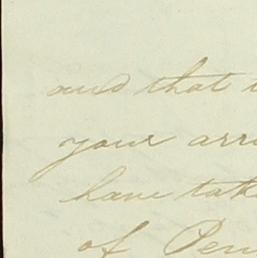 and that
your arri
have take
of Pen